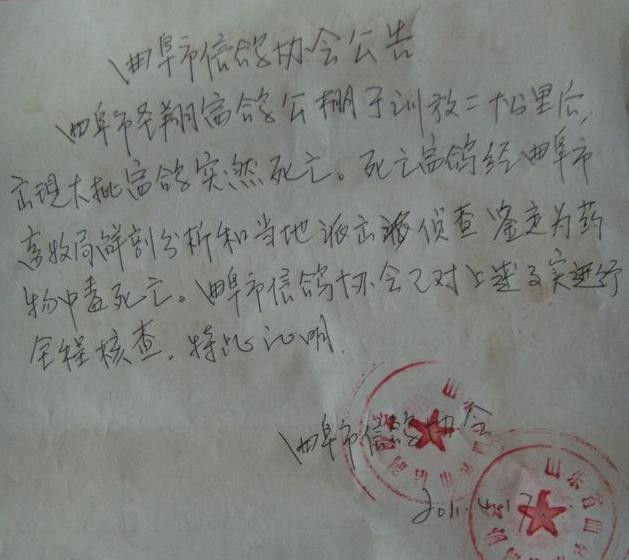 曲阜市信鸽协会公告
曲阜市圣翔赛鸽公棚于训放二十公里后,
出现大批赛鸽突然死亡。死亡赛鸽经曲阜市
畜牧局解剖分析和当地派出所侦查鉴定为药
物中毒死亡。曲阜市信鸽协会已对上述事实进行
全程核查。特此证明
曲阜市信鸽协会
2011.4.17
山东省曲